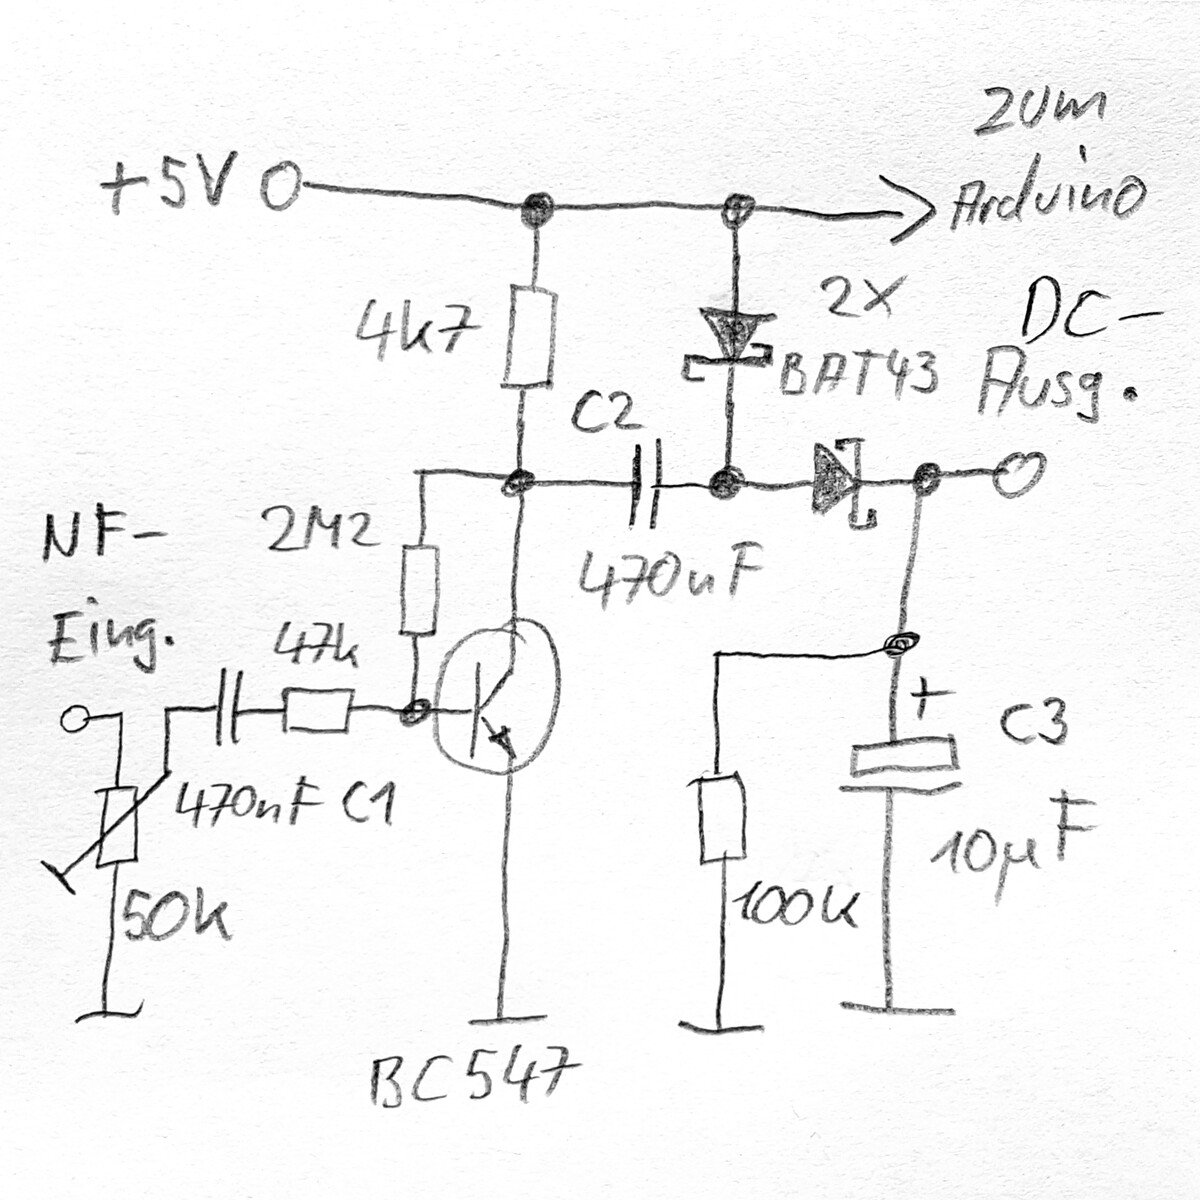 zum
Arduino
+5V
4k7
2X
BAT43
DC-
Ausg.
C2
470nF
NF-
Eing.
2M2
47k
470nF C1
50k
+
C3
10µF
100k
BC547